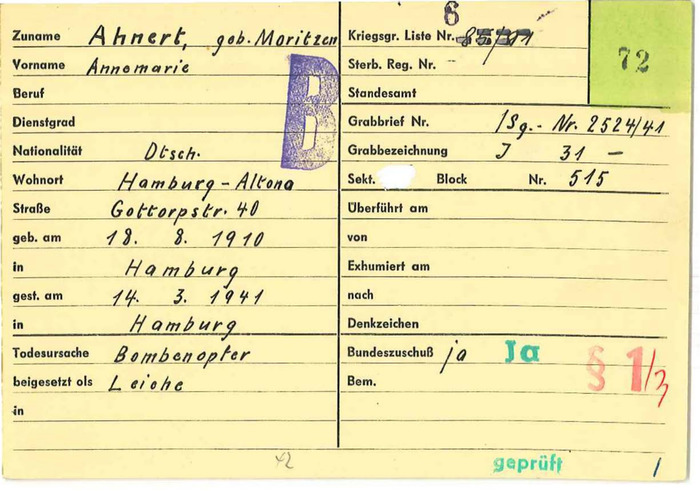 Zuname Ahnert, geb. Moritzen
Vorname Annemarie
Beruf
Dienstgrad
Nationalität Dtsch.
Wohnort Hamburg-Altona
Straße Gottorpstr. 40
geb. am 18. 8. 1910
in Hamburg
gest. am 14. 3. 1941
in Hamburg
Todesursache Bombenopfer
beigesetzt als Leiche
in
B
6
Kriegsgr. Liste Nr.
Sterb. Reg. Nr. -
Standesamt
72
Grabbrief Nr. /Sg.- Nr. 2524/41
Grabbezeichnung J 31 -
Sekt. Block Nr. 515
Überführt am
von
Exhumiert am
nach
Denkzeichen
Bundeszuschuß ja Ja
Bem. § 1/3
42
geprüft 1